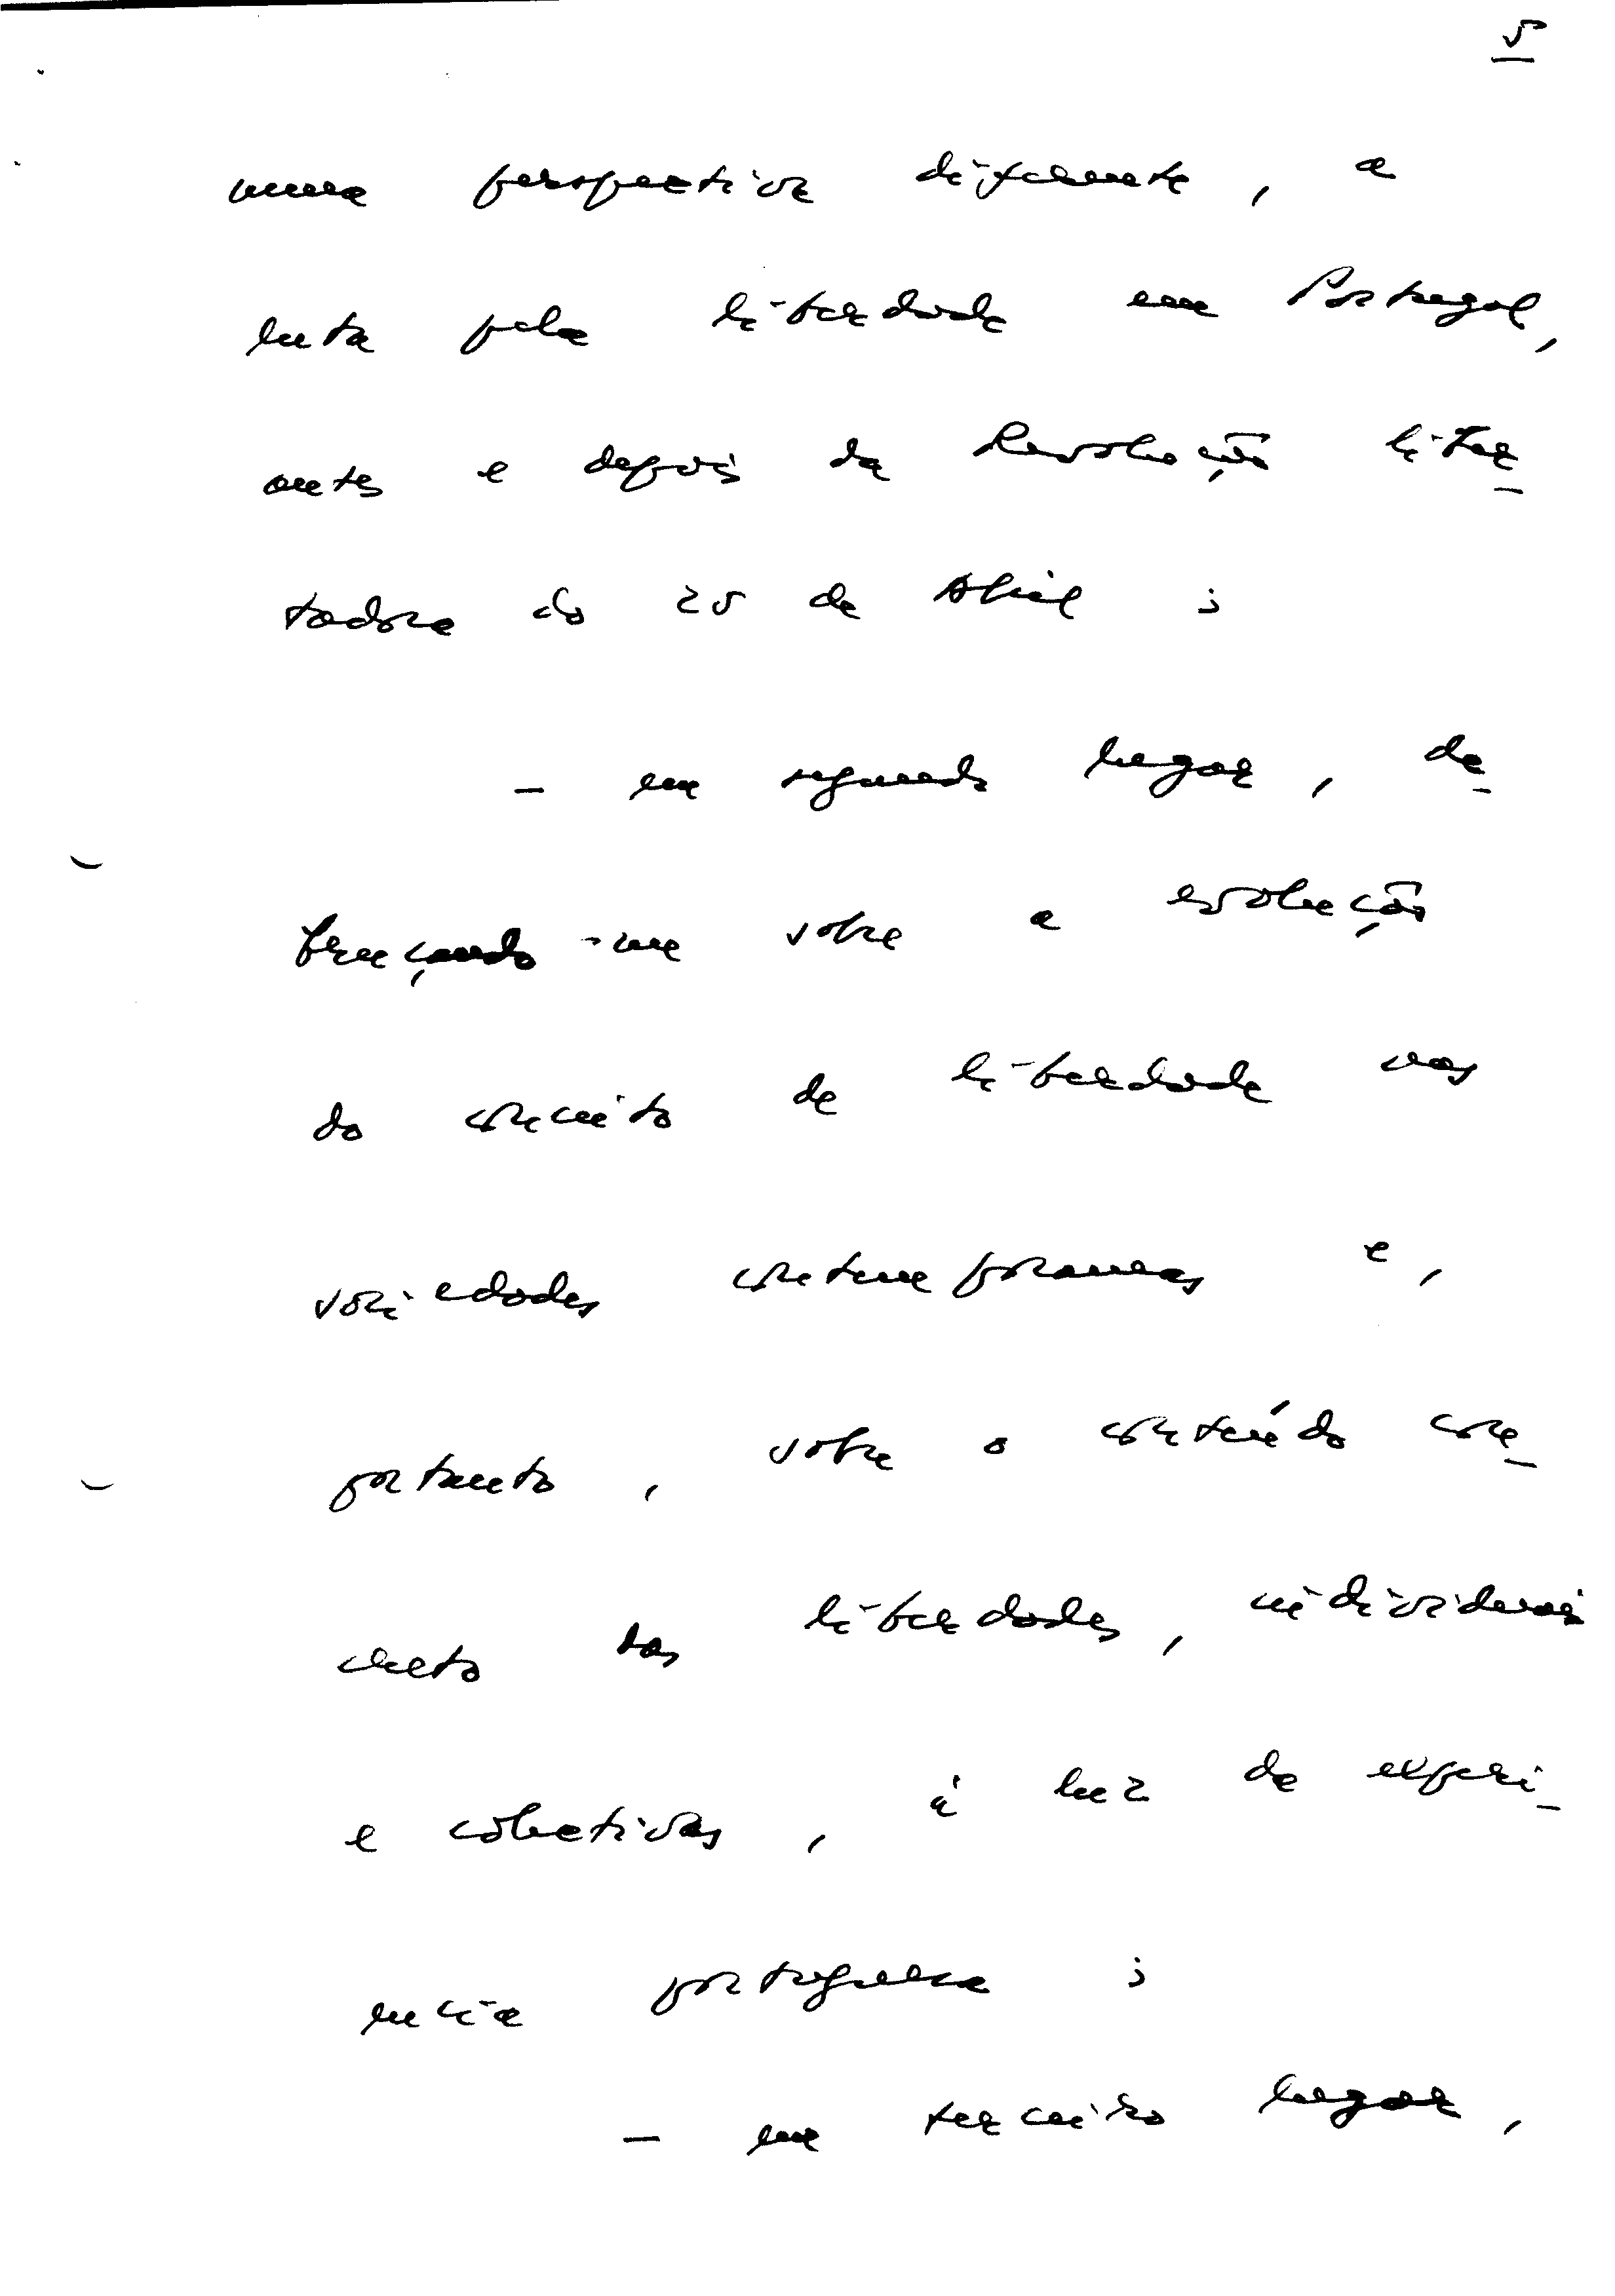 5
numa perspectiva diferente, a
luta pela liberdade em Portugal,
antes e depois da Revolução liber-
tadora do 25 de Abril;
- em segundo lugar, de-
bruçando-me sobre a evolução
do conceito de liberdade nas
sociedades contemporâneas e,
portanto, sobre o conteúdo con-
creto das liberdades, individuais
e colectivas, à luz da experi-
ência portuguesa;
- em terceiro lugar,